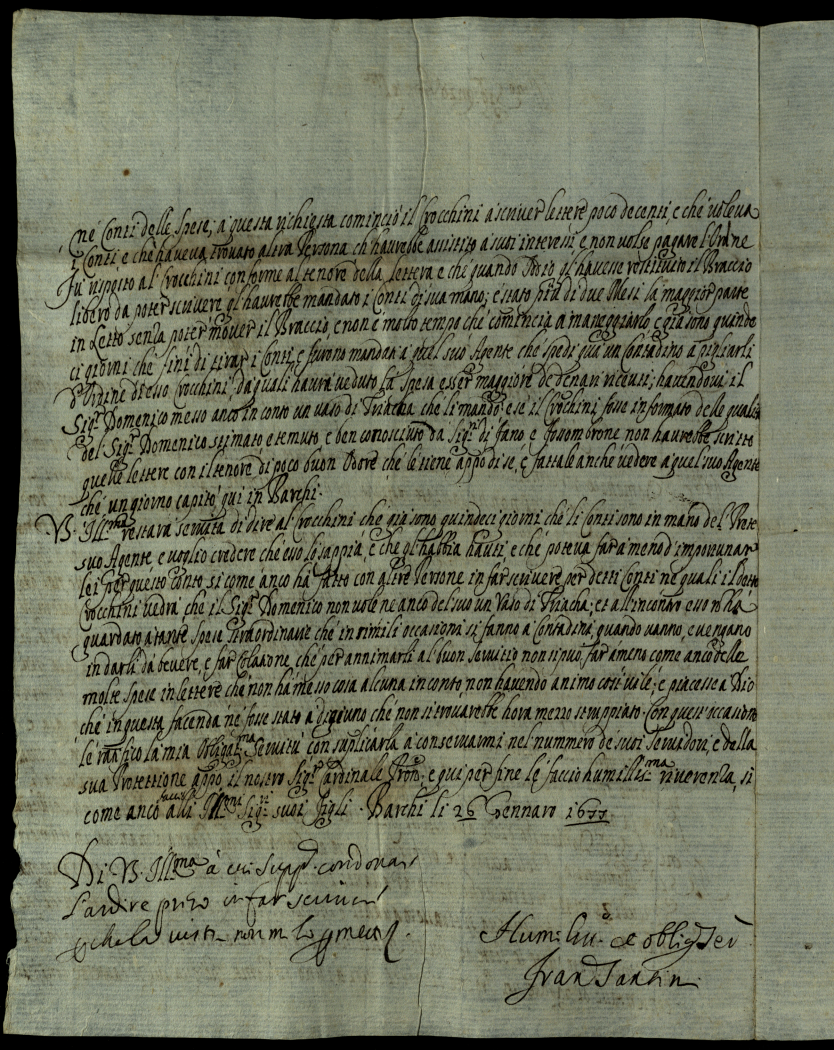 né Conti delle Spese; a questa richiesta cominciò il Crocchini a scriver lettere poco decenti, e che voleva
i Conti e che haveva trovato altra Persona ch'haurebbe assistito a suoi interessi, e non volse pagare l'Ordne
fu risposto al Crocchini conforme al tenore della lettera e che quando Dio gl'havesse restituito il Braccio
libero da poter scrivere gl'haurebbe mandato i Conti di sua mano; è stato più di due Mesi la maggior parte
in Letto senza poter mover il Braccio, e non è molto tempo che comincia a maneggiarlo e già sono quinde
ci giorni che finì di tirar i Conti, e furono mandati a quel suo Agente che spedì quà un Contadino a pigliarli
d'Ordine di esso Crocchini, da quali haurà veduto la Spesa esser maggiore de denari ricevuti; havendovi il
Sigr. Domenico messo anco in conto un vaso di Triacha che li mandò; e se il Crochini fosse informato delle qualità
del Sigr. Domenico stimato e temuto, e ben conosciuto da Sigri. di fano, e fossombrone non haurebbe scritto
quelle lettere con il tenore di poco buon Odore che le tiene appo di se, e fattale anche vedere a quel suo Agente
che un giorno capitò qui in Barchi.
V. Ill.ma restarà servita di dire al Crocchini che già sono quindeci giorni che li Conti sono in mano del Prete
suo Agente, e voglio credere che esso lo sappia, e che gl'habbia hauti, e che poteva far a meno d'importunar
lei per questo conto, si come anco ha fatto con altre Persone in far scrivere per detti Conti ne quali il detto
Crocchini vedrà che il Sigr. Domenico non vole ne anco del suo un Vaso di Triacha; et all'incontro esso non ha
guardato a tante Spese straordinarie che in simili occasioni si fanno a Contadini, quando vanno, e vengano
in darli da bevere, e far Colatione, che per annimarli al buon servitio non si può far a meno come anco delle
molte spese in lettere che non hà messo cosa alcuna in conto, non havendo animo così vile; e piacesse a Dio
che in questa facenda ne fosse stato a digiuno che non si trovarebbe hora mezzo stroppiato. Con quest'occasione
le ratifico la mia Obligat.ma Servitù con suplicarla a conservarmi nel nummero de suoi Servidori, e della
sua Protettione appo il nostro Sigr. Cardinale Prone, e qui per fine le faccio humillis.ma riverenza, si
come anco alli Ill.mi Sigri. suoi figli. Barchi li 26 Gennaro 1677
Di V. Ill.ma à cui suppo. condonar
l'ardire preso in far scrivere
p che la vista non m lo pmette
Humo. Siu. et obligo Ser
Fran Santin